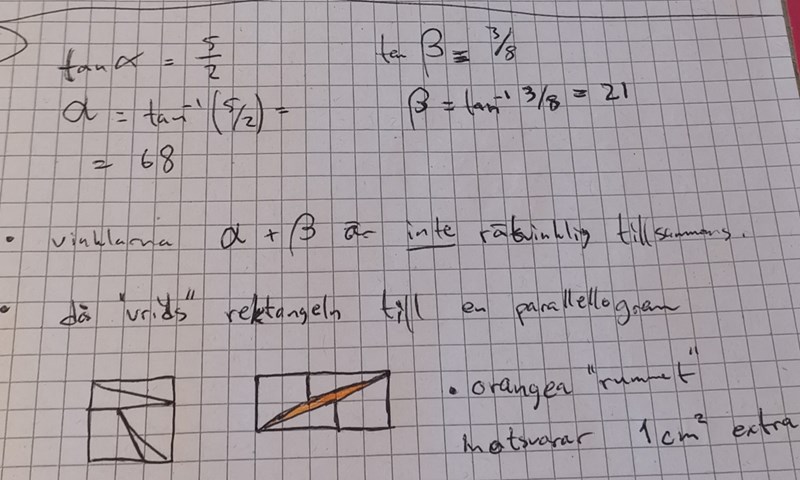 tan α = 5/2
tan β = 3/8
α = tan⁻¹ (5/2) =
= 68
β = tan⁻¹ 3/8 = 21
• vinklarna α + β är inte rätvinklig tillsammans.
• då "vrids" rektangeln till en parallellogram
• orangea "rummet"
motsvarar 1 cm² extra